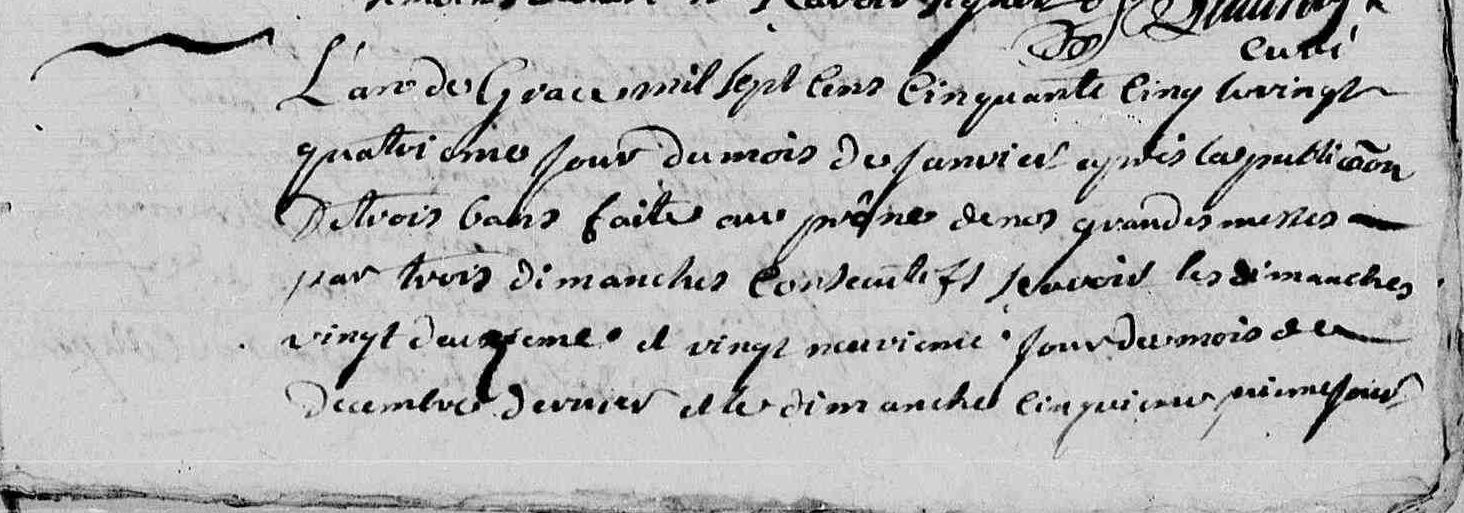 curé
L'an de Grace mil sept cens cinquante cinq le vingt
quatrieme jour du mois de janvier après la publicãon
des trois bans faite au prône de nos grandes messes
par trois dimanches consecutifs sçavoir les dimanches
vingt deuxieme et vingt neuvieme jour du mois de
decembre dernier et le dimanche cinquieme jour